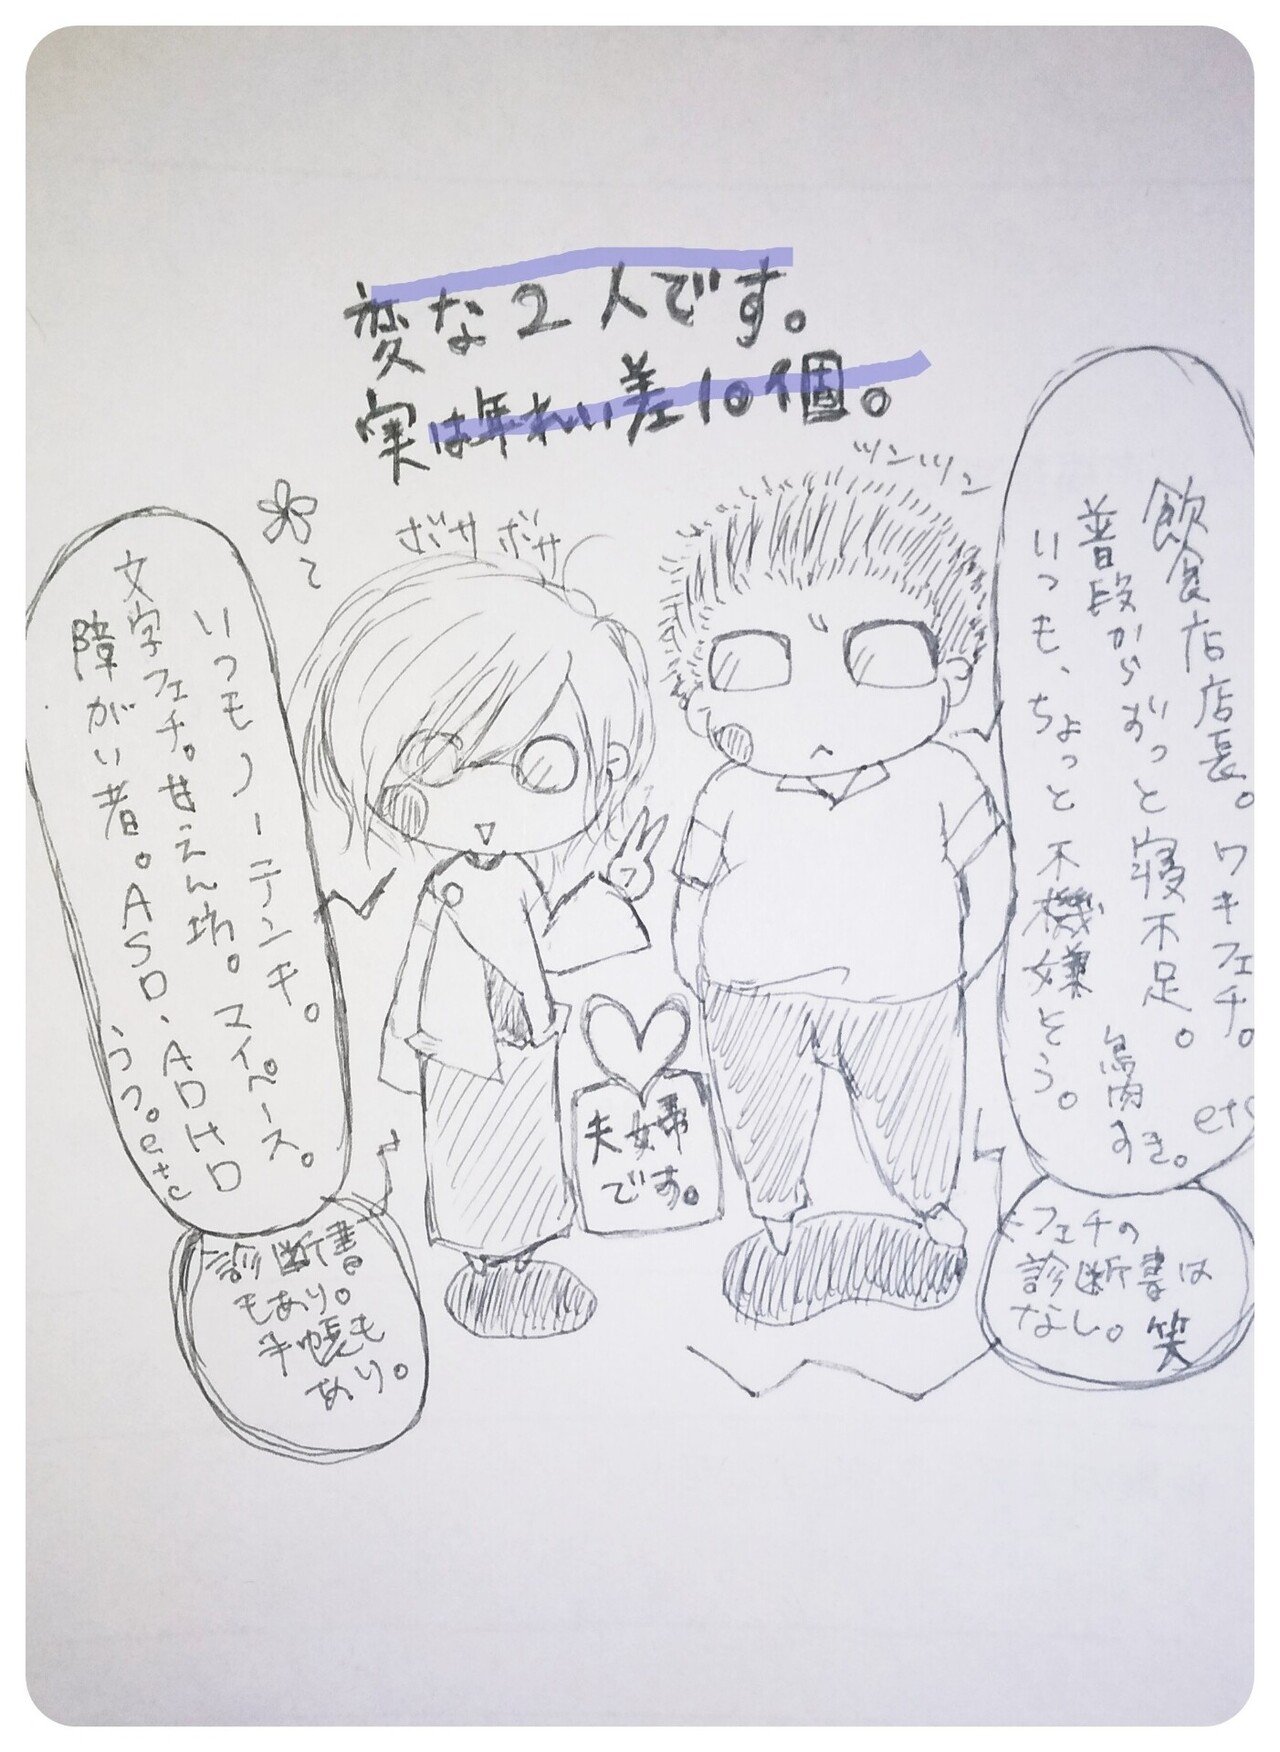 変な2人です。
実は年れい差10個。
ツンツン
ボサボサ
飲食店店長。ワキフェチ。etc
普段からずっと寝不足。
いつも、ちょっと不機嫌そう。
鳥肉すき。
いつもノーテンキ。
文字フェチ。甘えん坊。スイペース。
障がい者。ASD、ADHD
うつ。etc
夫婦
です。
診断書
もあり。
手帳も
あり。
フェチの
診断書は
なし。笑